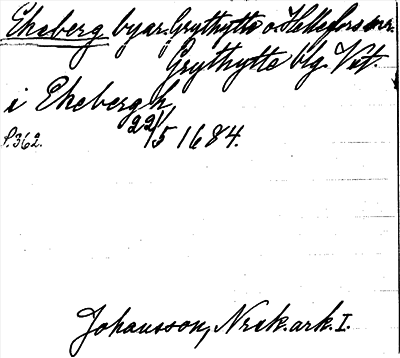 Ekeberg byar. Grythytte o. Hellefors snr.
Grythytte blg. Vst.
i Ekeberg h,
22/5 1684.
S. 362.
Johansson, Nrsk. ark. I.